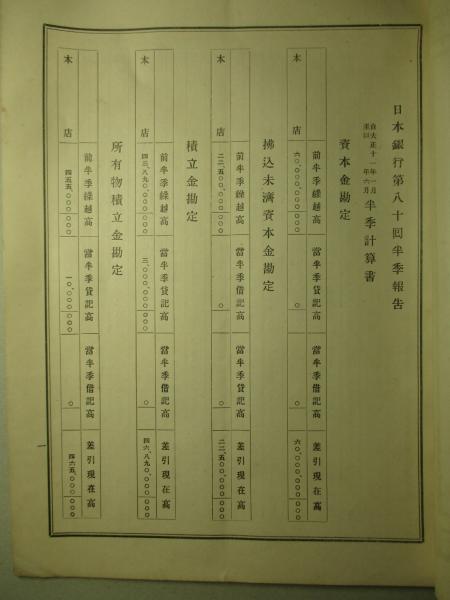 日本銀行第八十回半季報告
自大正十一年一月
至同年六月
半季計算書
資本金勘定
前半季繰越高 當半季貸記高 當半季借記高 差引現在高
本店 六〇,〇〇〇,〇〇〇 〇〇〇 〇 〇 六〇,〇〇〇,〇〇〇 〇〇〇
拂込未濟資本金勘定
前半季繰越高 當半季借記高 當半季貸記高 差引現在高
本店 二二,五〇〇,〇〇〇 〇〇〇 〇 〇 二二,五〇〇,〇〇〇 〇〇〇
積立金勘定
前半季繰越高 當半季貸記高 當半季借記高 差引現在高
本店 四三,八九〇,〇〇〇 〇〇〇 三,〇〇〇,〇〇〇 〇〇〇 〇 四六,八九〇,〇〇〇 〇〇〇
所有物積立金勘定
前半季繰越高 當半季貸記高 當半季借記高 差引現在高
本店 四五五,〇〇〇 〇〇〇 一〇,〇〇〇 〇〇〇 〇 四六五,〇〇〇 〇〇〇
一